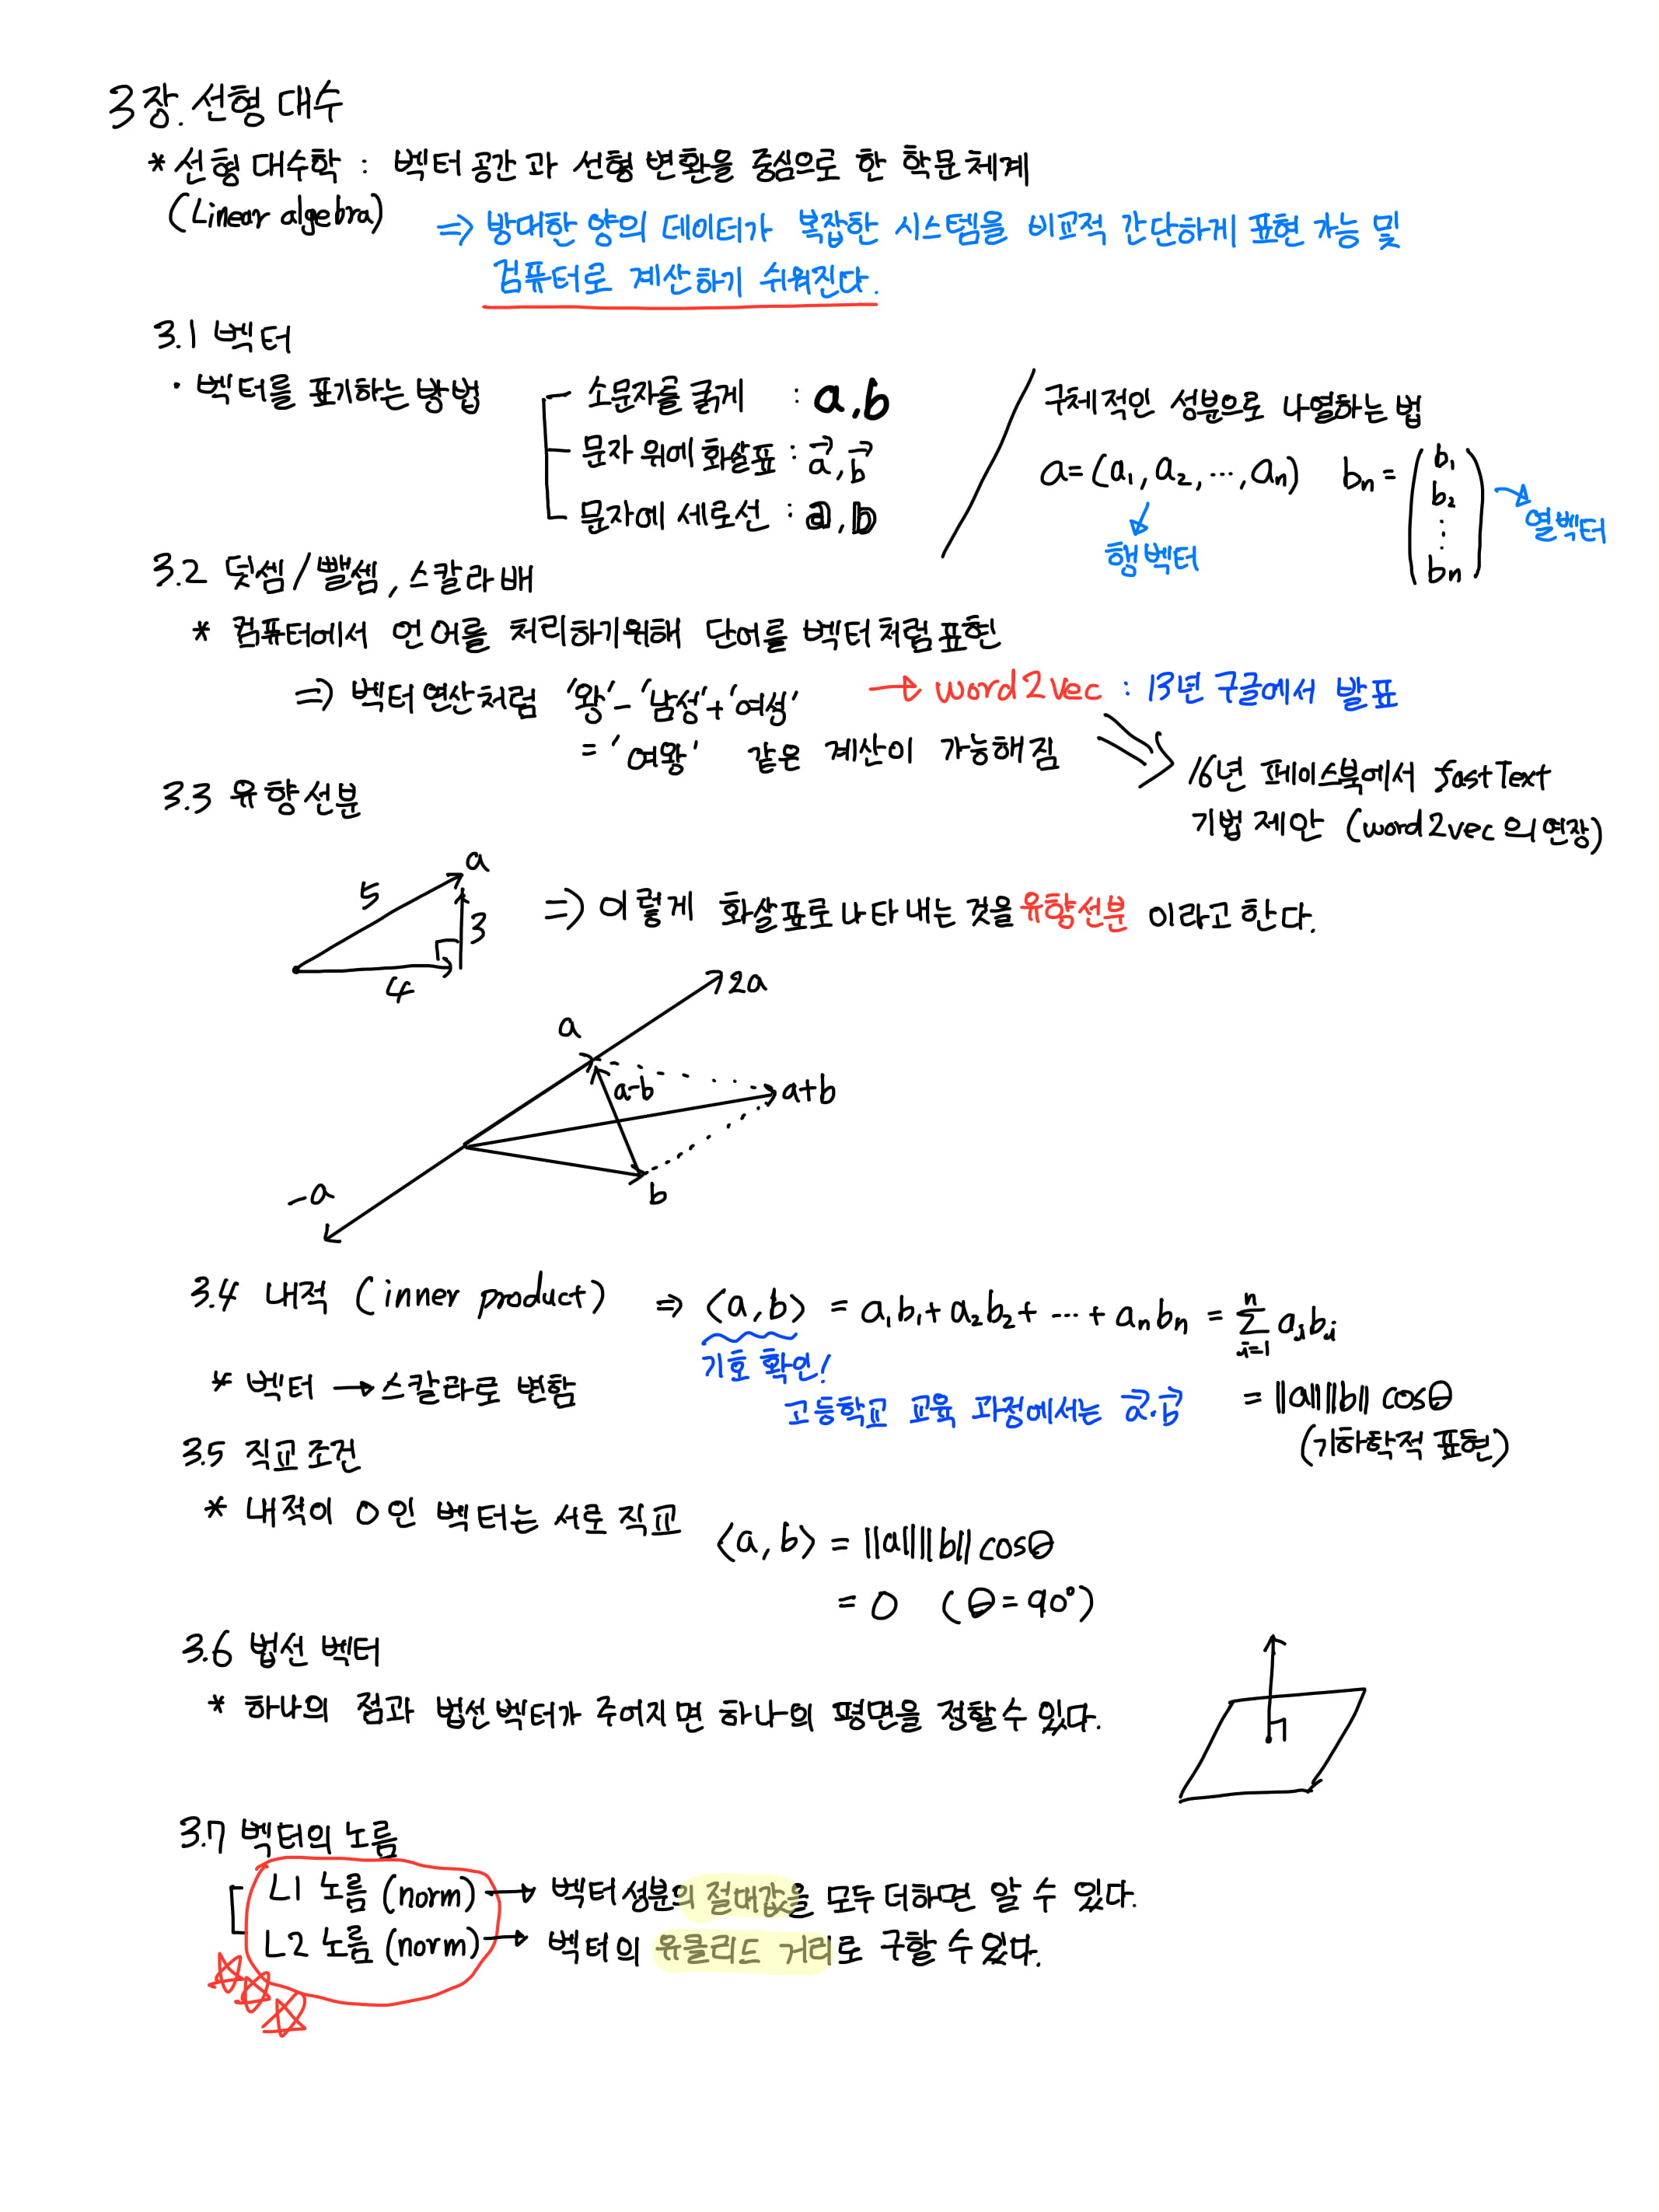 3장. 선형 대수
* 선형 대수학 : 벡터 공간과 선형 변환을 중심으로 한 학문체계
(Linear algebra)
⇒ 방대한 양의 데이터가 복잡한 시스템을 비교적 간단하게 표현 가능 및
컴퓨터로 계산하기 쉬워진다.
3.1 벡터
· 벡터를 표기하는 방법
소문자를 굵게 : a, b
문자 위에 화살표 : a⃗, b⃗
문자에 세로선 : 𝕒, 𝕓
구체적인 성분으로 나열하는 법
a = (a₁, a₂, ···, aₙ) bₙ = (b₁ b₂ ⋮ bₙ)
→ 열벡터
행벡터
3.2 덧셈/뺄셈, 스칼라배
* 컴퓨터에서 언어를 처리하기위해 단어를 벡터처럼 표현
⇒ 벡터 연산처럼 '왕'-'남성'+'여성' → word2vec : 13년 구글에서 발표
= '여왕' 같은 계산이 가능해짐
16년 페이스북에서 fastText
기법 제안 (word2vec의 연장)
3.3 유향선분
a
5
3
4
⇒ 이렇게 화살표로 나타내는 것을 유향선분 이라고 한다.
2a
a
a-b
a+b
b
-a
3.4 내적 (inner product) ⇒ ⟨a, b⟩ = a₁b₁ + a₂b₂ + ··· + aₙbₙ = ∑ⁿᵢ₌₁ aᵢbᵢ
기호 확인!
* 벡터 → 스칼라로 변함
고등학교 교육 과정에서는 a⃗·b⃗
= ‖a‖‖b‖ cosθ
(기하학적 표현)
3.5 직교 조건
* 내적이 0인 벡터는 서로 직교
⟨a, b⟩ = ‖a‖‖b‖ cosθ
= 0 (θ = 90°)
3.6 법선 벡터
* 하나의 점과 법선벡터가 주어지면 하나의 평면을 정할수 있다.
3.7 벡터의 노름
L1 노름 (norm) → 벡터성분의 절대값을 모두 더하면 알 수 있다.
L2 노름 (norm) → 벡터의 유클리드 거리로 구할 수 있다.